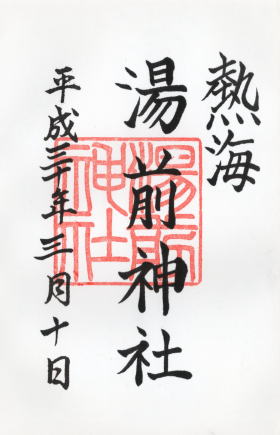 熱海
湯前神社
平成三十年三月十日
湯前
神社